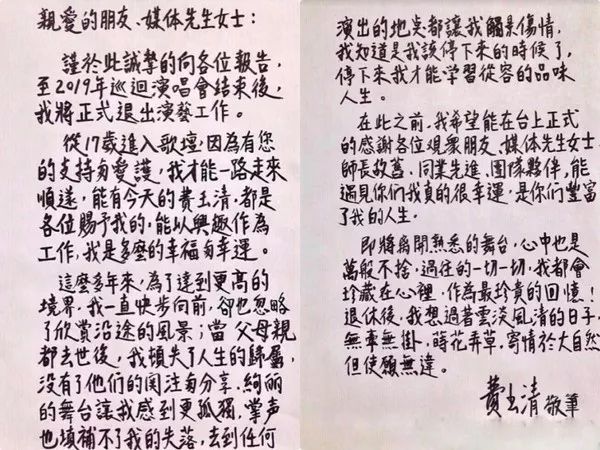 親愛的朋友、媒体先生女士：
謹於此誠摯的向各位報告，
至2019年巡迴演唱會結束後，
我將正式退出演藝工作。
從17歲進入歌壇，因為有您
的支持与愛護，我才能一路走來
順遂，能有今天的費玉清，都是
各位賜予我的，能以興趣作為
工作，我是多麼的幸福与幸運。
這麼多年來，為了達到更高的
境界，我一直快步向前，卻也忽略
了欣賞沿途的風景；當父母親
都去世後，我頓失了人生的歸屬，
沒有了他們的関注与分享，絢丽
的舞台讓我感到更孤獨，掌声
也填補不了我的失落，去到任何
演出的地点都讓我觸景傷情，
我知道是我該停下來的時候了，
停下來我才能學習從容的品味
人生。
在此之前，我希望能在台上正式
的感謝各位觀衆朋友、媒体先生女士、
師長故舊、同業先進、团隊夥伴，能
遇見你们我真的很幸運，是你们豐富
了我的人生。
即將离開熟悉的舞台，心中也是
萬般不捨，過往的一切一切，我都會
珍藏在心裡，作為最珍貴的回憶！
退休後，我想過著雲淡風清的日子，
無牽無掛，蒔花弄草，寄情於大自然
但使願無違。
費玉清 敬筆